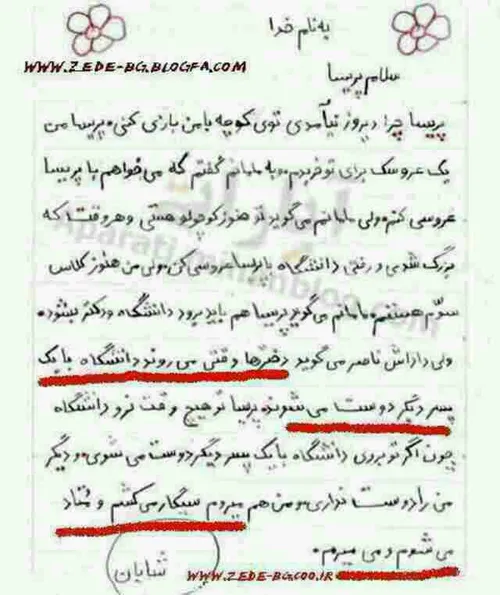 به نام خدا
WWW.ZEDE-BG.BLOGFA.COM
سلام پریسا
پریسا چرا دیروز نیآمدی توی کوچه با من بازی کنی، پریسا من
یک عروسک برای تو خریدم، و به مامانم گفتم که می خواهم با پریسا
عروسی کنم، ولی مامانم می گوید تو هنوز کوچولو هستی و هر وقت که
بزرگ شدی و رفتی دانشگاه با پریسا عروسی کن، ولی من هنوز کلاس
سوّم هستم، مامانم می گوید پریسا هم باید برود دانشگاه و دکتر بشود،
ولی داداش ناصر می گوید دخترها وقتی می روند دانشگاه با یک
پسر دیگر دوست می شوند، پریسا تو هیچ وقت نرو دانشگاه
چون اگر تو بروی دانشگاه با یک پسر دیگر دوست می شوی، و دیگر
من را دوست نداری، و من هم میروم سیگار می کشم و مُتاد
می شوم و می میرم.
شایان
WWW.ZEDE-BG.COO.IR